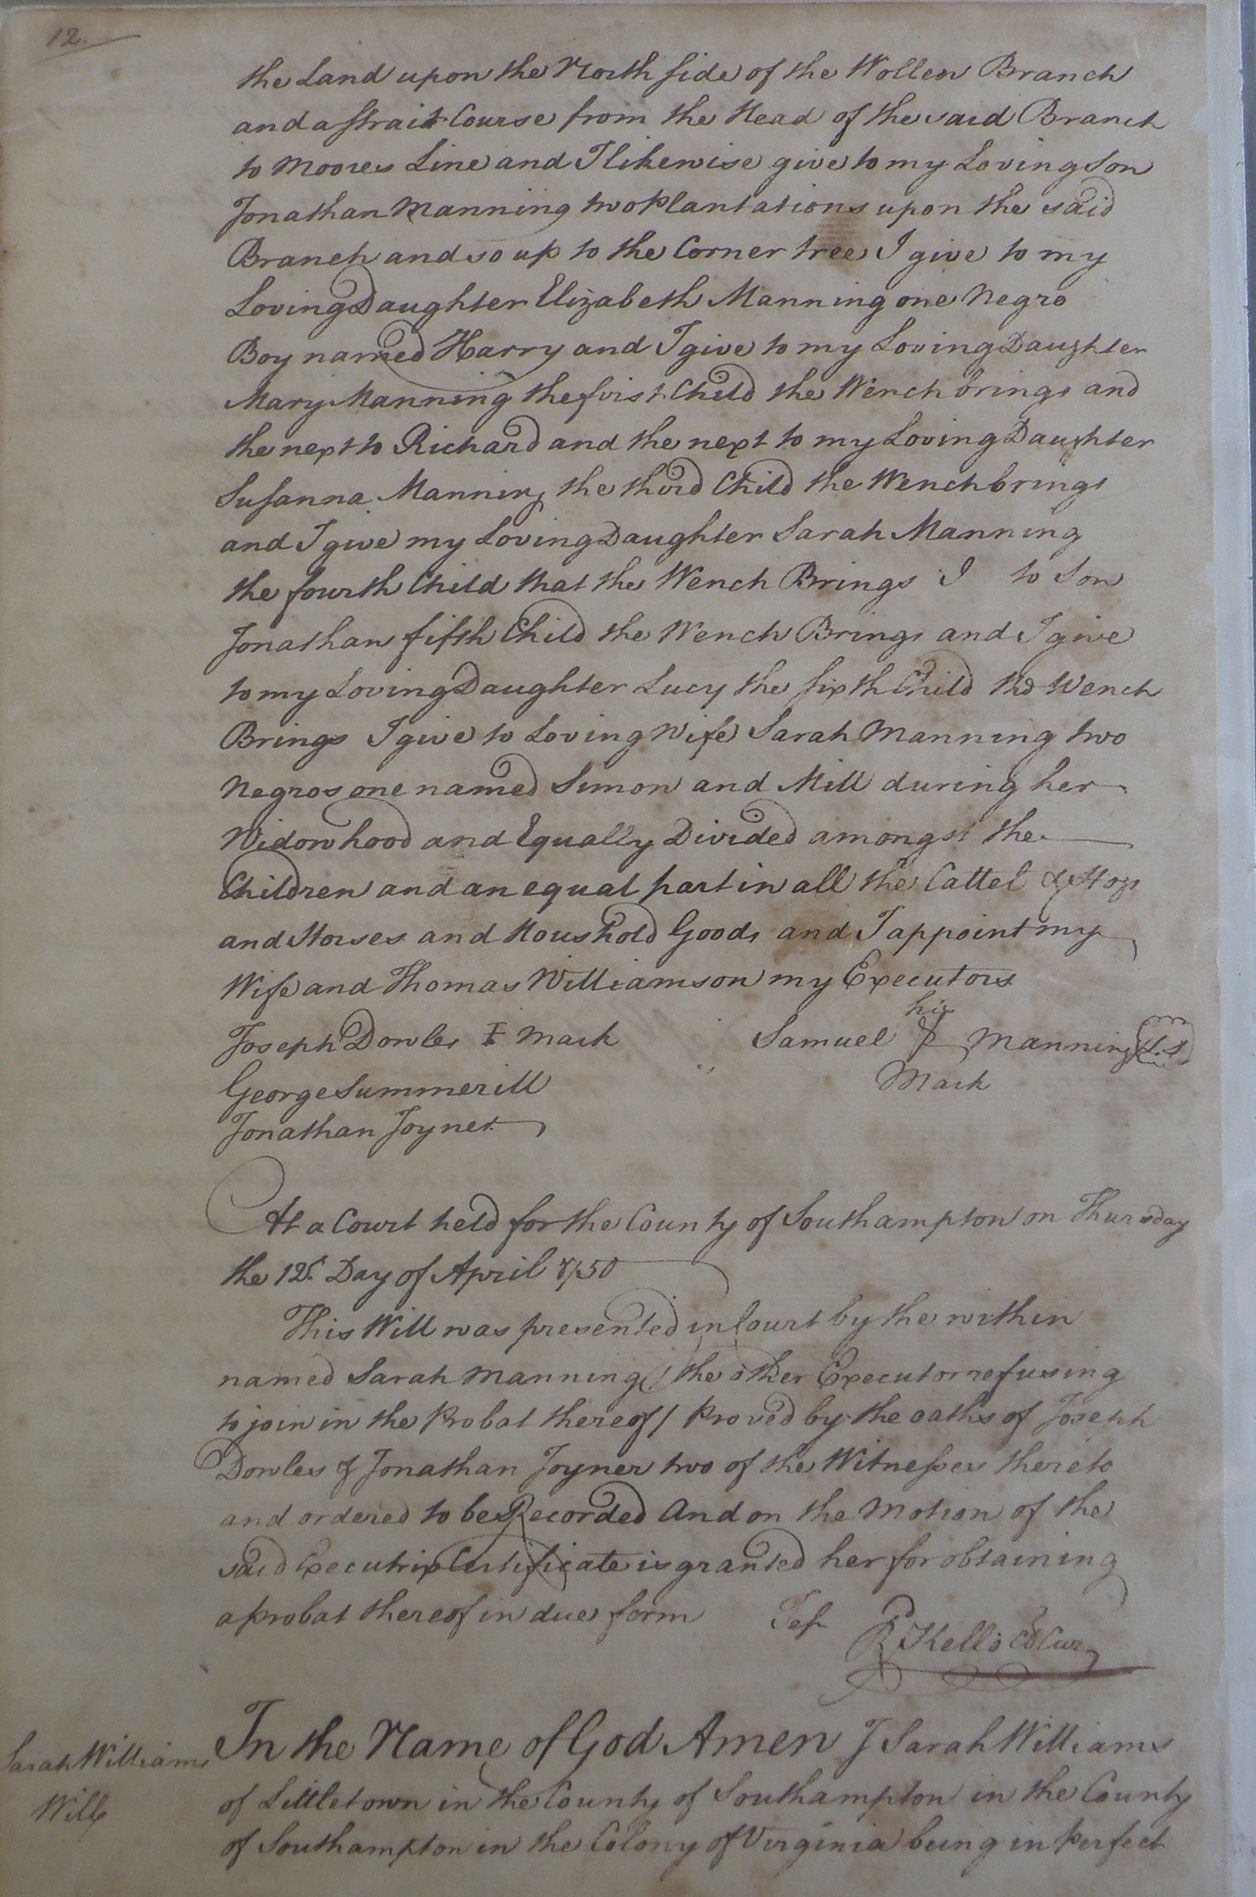 12.
the Land upon the North side of the Wollen Branch
and a strait Course from the Head of the said Branch
to Moores Line and I likewise give to my Loving Son
Jonathan Manning two Plantations upon the said
Branch and so up to the Corner tree I give to my
Loving Daughter Elizabeth Manning one Negro
Boy named Harry and I give to my Loving Daughter
Mary Manning the first Child the Wench brings and
the next to Richard and the next to my Loving Daughter
Susanna Manning the third Child the Wench brings
and I give my Loving Daughter Sarah Manning
the fourth Child that the Wench Brings I to Son
Jonathan fifth Child the Wench Brings and I give
to my Loving Daughter Lucy the sixth Child the Wench
Brings I give to Loving Wife Sarah Manning two
Negros one named Simon and Mill during her
Widowhood and Equally Divided amongst the
Children and an equal part in all the Cattel & Hogs
and Horses and Houshold Goods and I appoint my
Wife and Thomas Williamson my Executors
his
Joseph Dowles I Mark Samuel Manning L.S
George Summerill Mark
Jonathan Joyner
At a Court held for the County of Southampton on Thursday
the 12t. Day of April 1750
This Will was presented in Court by the within
named Sarah Manning (the other Executor refusing
to join in the Probat thereof) Proved by the oaths of Joseph
Dowles & Jonathan Joyner two of the Witnesses thereto
and ordered to be Recorded And on the Motion of the
said Executrix Certificate is granted her for obtaining
a Probat thereof in due form Test
R Kello Cl Cur
Sarah Williams
Will
In the Name of God Amen I Sarah Williams
of Littletown in the County of Southampton in the County
of Southampton in the Colony of Virginia being in Perfect